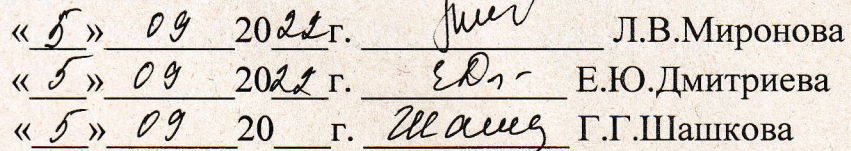 «5» 09 2022г. Л.В.Миронова
«5» 09 2022г. Е.Ю.Дмитриева
«5» 09 20 г. Г.Г.Шашкова